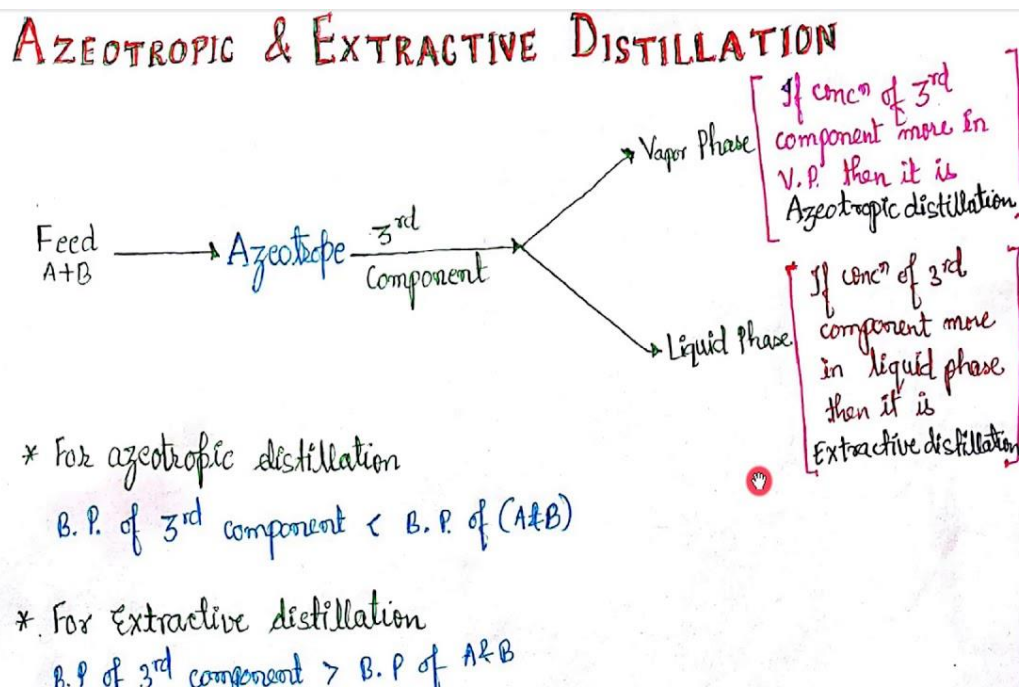 AZEOTROPIC & EXTRACTIVE DISTILLATION
Feed
A+B
Azeotrope
3rd
Component
Vapor Phase
If concn of 3rd
component more in
V.P. then it is
Azeotropic distillation
Liquid Phase
If concn of 3rd
component more
in liquid phase
then it is
Extractive distillation
* For azeotropic distillation
B.P. of 3rd component < B.P. of (A&B)
*. For Extractive distillation
B.P of 3rd component > B.P of A&B